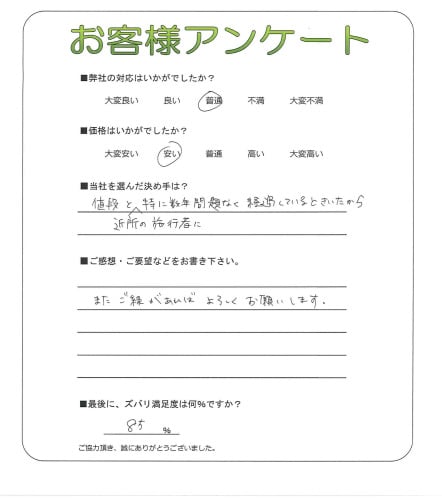 お客様アンケート
■弊社の対応はいかがでしたか？
大変良い 良い 普通 不満 大変不満
■価格はいかがでしたか？
大変安い 安い 普通 高い 大変高い
■当社を選んだ決め手は？
値段と、特に数年問題なく経過しているときいたから
近所の施行者に
■ご感想・ご要望などをお書き下さい。
またご縁があればよろしくお願いします。
■最後に、ズバリ満足度は何%ですか？
85 %
ご協力頂き、誠にありがとうございました。